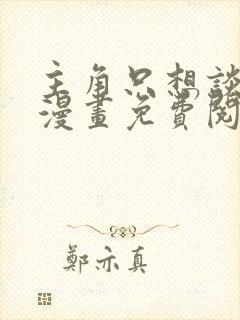 主角只想談
漫畫免費閱
鄭亦真